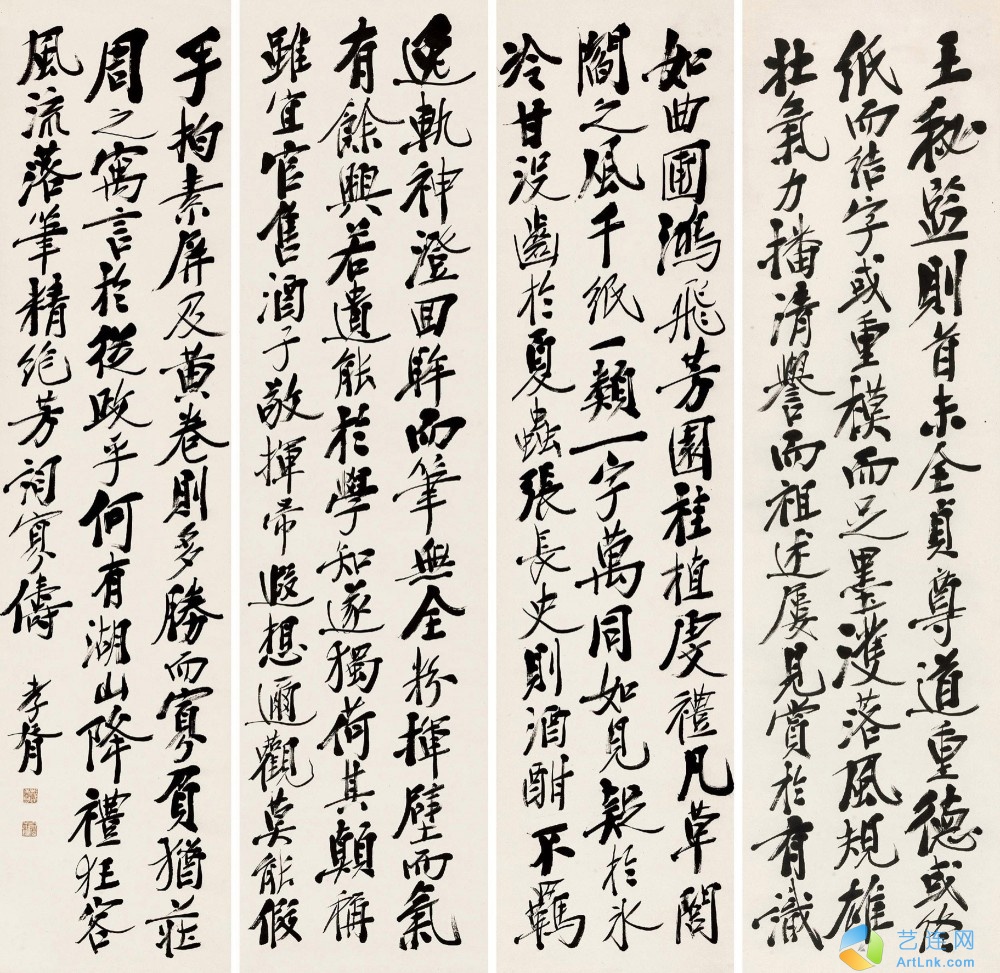 王秘監則首末全貞尊道重德或終
紙而結字或重模而足墨濩落風規雄
壯氣力播清譽而祖述屢見賞於有識
如曲圃鴻飛芳園桂植虔禮凡草閭
閻之風千紙一類一字萬同如見疑於氷
冷甘沒齒於夏蟲張長史則酒酣不羈
逸軌神澄回眸而筆無全粉揮壁而氣
有餘興若遺能於學知遂獨荷其顛稱
雖宜官售酒子敬揮帚遐想邇觀莫能假
手拘素屏及黃卷則多勝而寡負猶莊
周之寓言於從政乎何有湖山降禮狂客
風流落筆精絕芳詞寡儔
孝胥
艺连网
ArtLnk.com